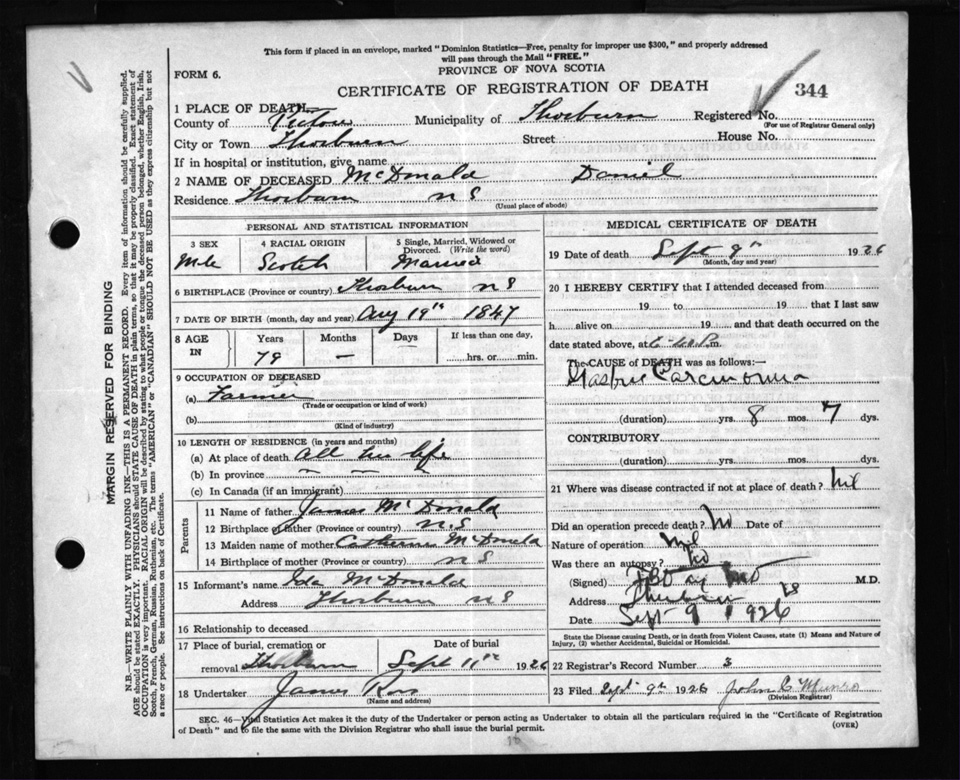 This form if placed in an envelope, marked "Dominion Statistics—Free, penalty for improper use $300," and properly addressed
will pass through the Mail "FREE."
PROVINCE OF NOVA SCOTIA
FORM 6.
CERTIFICATE OF REGISTRATION OF DEATH
344
1 PLACE OF DEATH
County of Pictou Municipality of Thorburn Registered No.
(For use of Registrar General only)
City or Town Thorburn Street House No.
If in hospital or institution, give name
2 NAME OF DECEASED McDonald Daniel
Residence Thorburn N S
(Usual place of abode)
PERSONAL AND STATISTICAL INFORMATION
3 SEX 4 RACIAL ORIGIN 5 Single, Married, Widowed or
Divorced. (Write the word)
Male Scotch Married
6 BIRTHPLACE (Province or country) Thorburn N S
7 DATE OF BIRTH (month, day and year) Aug 19th 1847
8 AGE IN Years Months Days If less than one day,
79 — hrs. or min.
9 OCCUPATION OF DECEASED
(a) Farmer
(Trade or occupation or kind of work)
(b)
(Kind of industry)
10 LENGTH OF RESIDENCE (in years and months)
(a) At place of death all his life
(b) In province
(c) In Canada (if an immigrant)
Parents
11 Name of father James McDonald
12 Birthplace of father (Province or country) N.S
13 Maiden name of mother Catherine McDonald
14 Birthplace of mother (Province or country) N S
15 Informant's name Ida McDonald
Address Thorburn N S
16 Relationship to deceased
17 Place of burial, cremation or Date of burial
removal Thorburn Sept 11th 1926
18 Undertaker James Ross
(Name and address)
MEDICAL CERTIFICATE OF DEATH
19 Date of death Sept 9th 1926
(Month, day and year)
20 I HEREBY CERTIFY that I attended deceased from
19 to 19 that I last saw
h alive on 19 and that death occurred on the
date stated above, at P.m.
The CAUSE of DEATH was as follows:—
Gastric Carcinoma
(duration) yrs. 8 mos. 7 dys.
CONTRIBUTORY
(duration) yrs. mos. dys.
21 Where was disease contracted if not at place of death?
Did an operation precede death? No Date of
Nature of operation nil
Was there an autopsy? No
(Signed) M.D.
Address Thorburn NS
Date Sept 9 1926
State the Disease causing Death, or in death from Violent Causes, state (1) Means and Nature of
Injury, (2) whether Accidental, Suicidal or Homicidal.
22 Registrar's Record Number 3
23 Filed Sept 9th 1926 John C Munro
(Division Registrar)
SEC. 46—Vital Statistics Act makes it the duty of the Undertaker or person acting as Undertaker to obtain all the particulars required in the "Certificate of Registration
of Death" and to file the same with the Division Registrar who shall issue the burial permit.
(OVER)
MARGIN RESERVED FOR BINDING
N.B.—WRITE PLAINLY WITH UNFADING INK—THIS IS A PERMANENT RECORD. Every item of information should be carefully supplied.
AGE should be stated EXACTLY. PHYSICIANS should STATE CAUSE OF DEATH in plain terms, so that it may be properly classified. Exact statement of
OCCUPATION is very important. RACIAL ORIGIN will be described by stating to what people or tongue the deceased person belonged, whether English, Irish,
Scotch, French, German, Russian, Ruthenian, etc. The terms "AMERICAN" or "CANADIAN" SHOULD NOT BE USED as they express citizenship but not
a race or people. See instructions on back of Certificate.